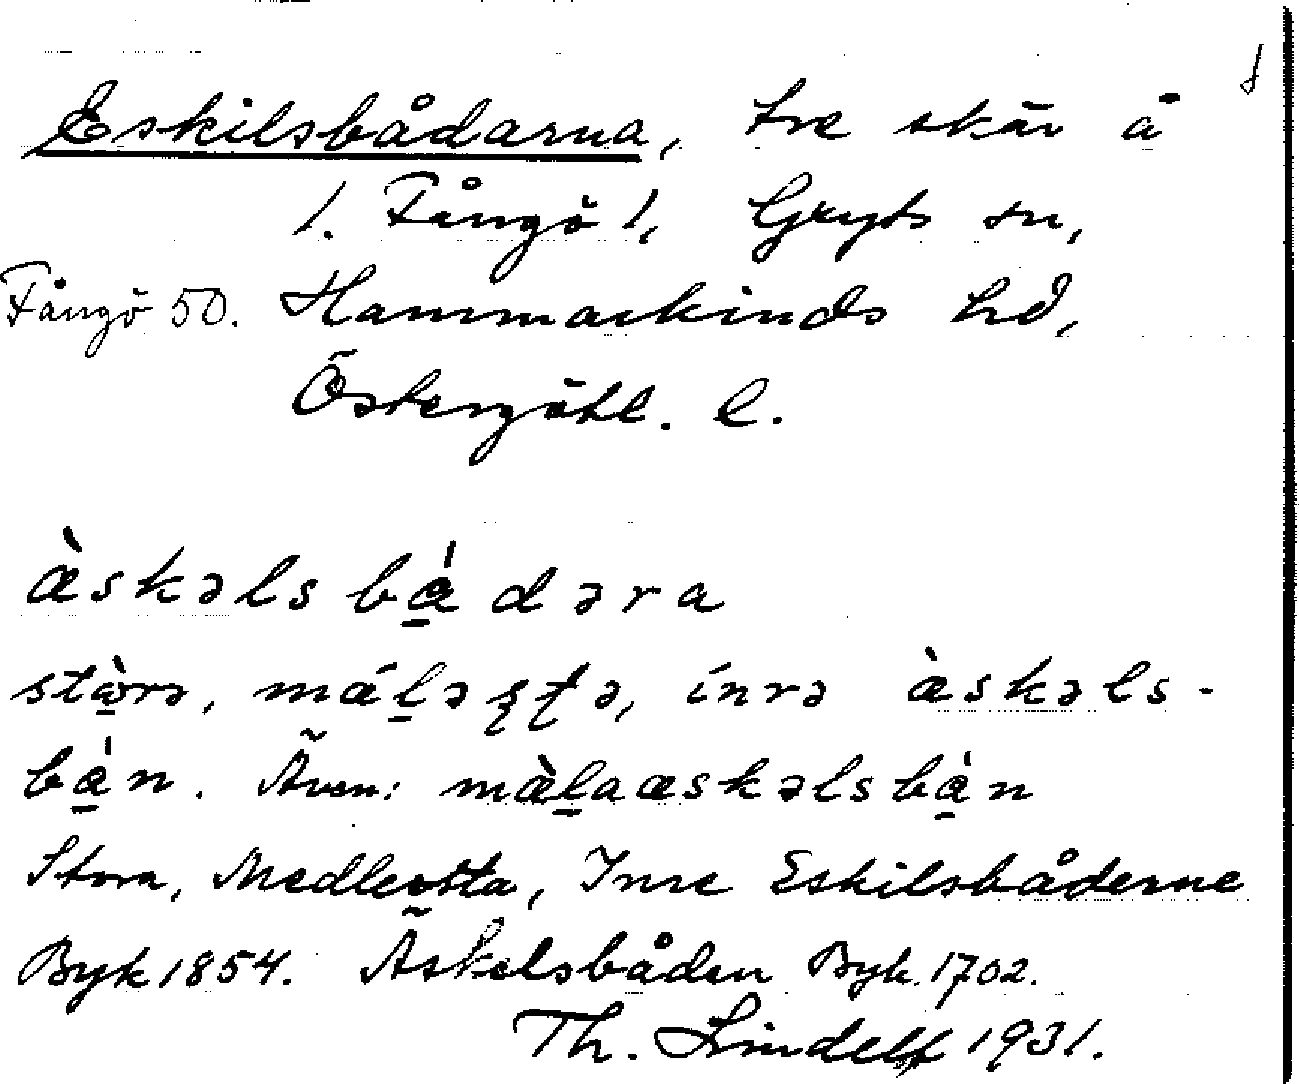 Eskilsbådarna, tre skär å
l. Fångö l, Gryts sn,
Fångö 50. Hammarkinds hd,
Östergötl. l.
æ̀skəlsbá̱dəra
stò̱rə, mál̠əʂʈə, ínrə æ̀skəls-
bá̱n. Även: mæ̀l̠aæskəlsbá̱n
Stora, Medlersta, Inre Eskilsbåderne
Byk 1854. Äskelsbåden Byk. 1702.
Th. Lindell 1931.